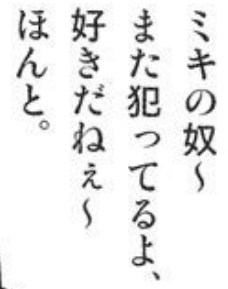 ミキの奴～
また犯ってるよ、
好きだねぇ～
ほんと。